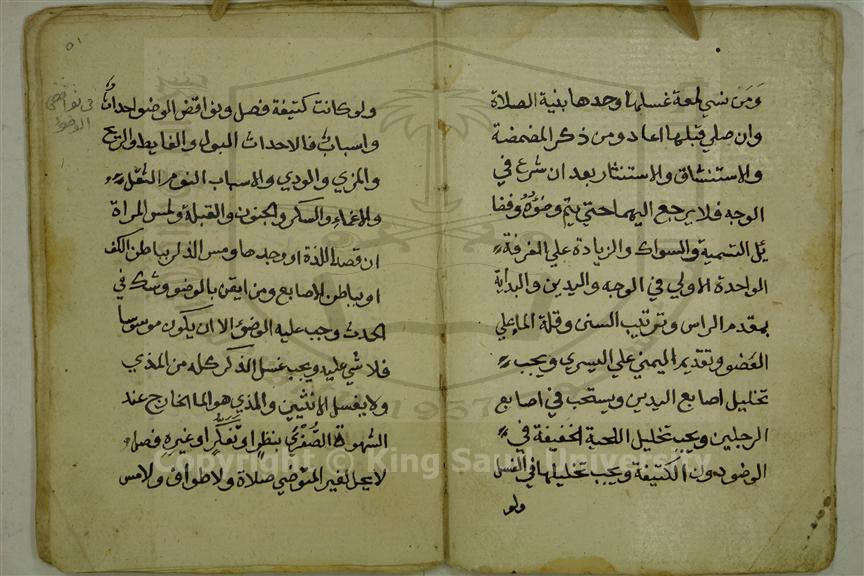 ومن نسي لمعة غسلها وحدها بنية الصلاة
وان صلي قبلها اعاد ومن ذكر المضمضة
والاستنشاق والاستنثار بعد ان شرع في
الوجه فلا يرجع اليهما حتي يتم وضوءه وفضا
ئل التسمية والسواك والزيادة علي الغرفة
الواحدة الاولي في الوجه واليدين والبداية
بمقدم الراس وترتيب السنن وقلة الماء علي
العضو وتقديم اليمني علي اليسري ويجب
تخليل اصابع اليدين ويستحب في اصابع
الرجلين ويجب تخليل اللحية الخفيفة في
الوضوء دون الكثيفة ويجب تخليلها في الغسل
ولو
٥١
في نواقض
الوضوء
ولو كانت كثيفة فصل ونواقض الوضوء احداث
واسباب فالاحداث البول والغايط والريح
والمزي والودي والاسباب النوم الثقل
والاغماء والسكر والجنون والقبلة ولمس المراة
ان قصد اللذة او وجدها ومس الذكر بباطن الكف
او بباطن الاصابع ومن ايقن بالوضوء وشك في
الحدث وجب عليه الوضوء الا ان يكون موسوسا
فلا شي عليه ويجب غسل الذكر كله من المذي
ولا يغسل الانثيين والمذي هو الما الخارج عند
الشهوة الصغري بنظر او تفكر او غيره فصل
لا يحل لغير المتوضي صلاة ولا طواف ولا مس
Copyright © King Saud University
1957